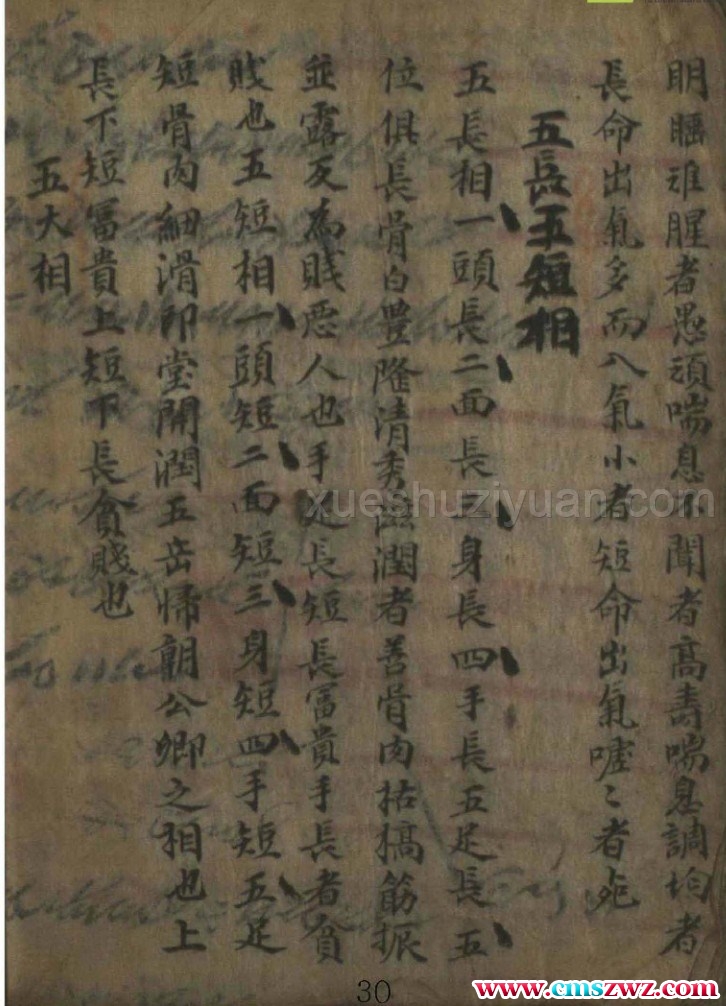 眀睡难腥者愚頑喘息不聞者高壽喘息調均者
長命出氣多而入氣小者短命出氣嘘〻者死
五長五短相
五長相一頭長二面長三身長四手長五足長五
位俱長骨白豊隆清秀滋潤者善骨肉枯槁筋振
並露反為賤悪人也手足長短長冨貴手長者貧
賤也五短相一頭短二面短三身短四手短五足
短骨肉細滑印堂開潤五岳帰朝公卿之相也上
長下短冨貴上短下長貪賤也
五大相
xueshuziyuan.com
30
www.cmszwz.com